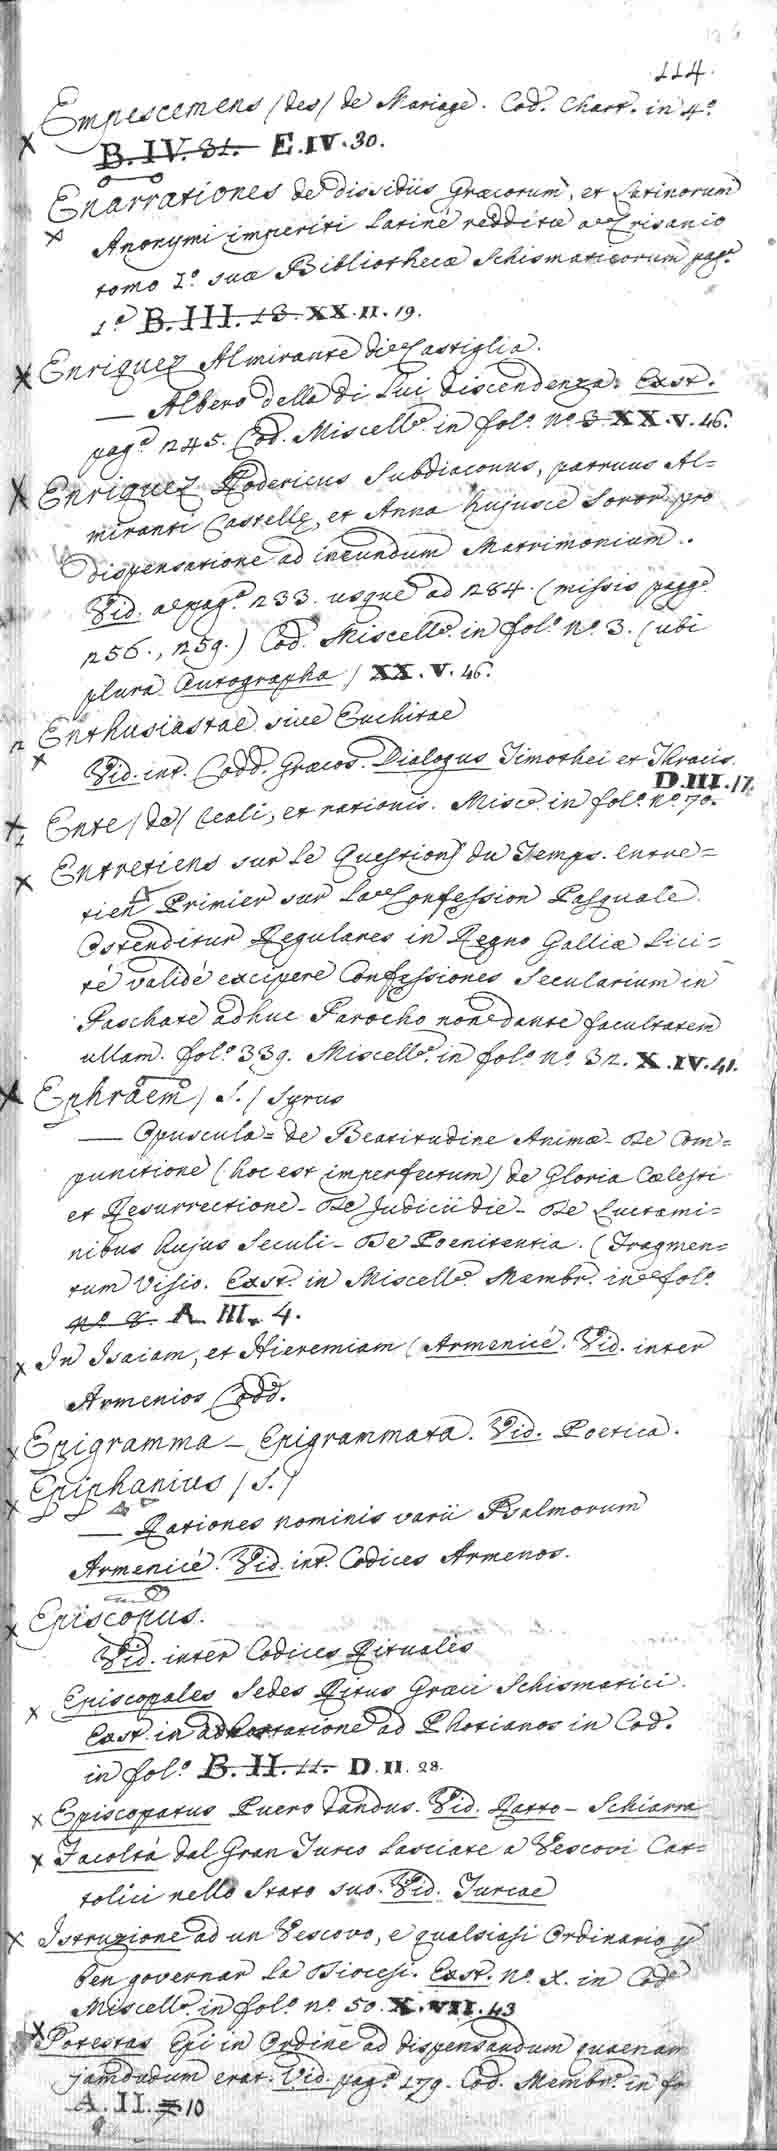 114.
Empescemens /des/ de Mariage. Cod. Chart. in 4.º
B.IV.31. E.IV.30.
Enarrationes de dissidiis Græcorum, et Latinorum
Anonymi imperiti Latinè redditæ a Crisanio
tomo I.º suæ Bibliothecæ Schismaticorum pag.ª
1.ª B.III.13. XX.II.19.
Enriquez Almirante di Castiglia.
— Albero della di Lui discendenza. Exst.
pag.ª 245. Cod. Miscell.º in fol.º n.º 3. XX.V.46.
Enriquez Rodericus Subdiaconus, patruus Al=
miranti Castellę, et Anna hujusce Soror pro
dispensatione ad ineundum Matrimonium.
Vid. a pag.ª 233. usque ad 284. (missis pagg.
256., 259.) Cod. Miscell.º in fol.º n.º 3. (ubi
plura Autographa / XX.V.46.
Enthusiastae sive Euchitae
Vid. int. Codd. Græcos. Dialogus Timothei et Thracis.
D.III.17.
Ente /de/ Reali, et rationis. Misc.º in fol.º n.º 70.
Entretiens sur Le Questions du Temps. Entre=
tien Primier sur La Confession Pasquale.
Ostenditur Regulares in Regno Galliæ Lici=
tè validè excipere Confessiones Secularium in
Paschate adhuc Parocho non dante facultatem
ullam. fol.º 339. Miscell.º in fol.º n.º 32. X.IV.41.
Ephraem /S./ Syrus
— Opuscula = de Beatitudine Animæ - De Com=
punctione (hoc est imperfectum) de Gloria Cælesti
et Resurrectione - De Judicii die - De Luctami=
nibus hujus Seculi - De Poenitentia. (Fragmen=
tum Visio. Exst. in Miscell.º Membr. in fol.º
n.º 8. A.III.4.
In Isaiam, et Hieremiam (Armenicè. Vid. inter
Armenios Codd.
Epigramma - Epigrammata. Vid. Poetica.
Epiphanius /S./
— Rationes nominis varii Psalmorum
Armenicè. Vid. int. Codices Armenos.
Episcopus.
Vid. inter Codices Rituales
Episcopales Sedes Ritus Græci Schismatici.
Exst. in adhortatione ad Photianos in Cod.
in fol.º B.II.11. D.II.28.
Episcopatus Puero dandus. Vid. Ratto - Schiarra
Facoltà dal Gran Turco Lasciate a Vescovi Cat=
tolici nello Stato suo. Vid. Turcae
Istruzione ad un Vescovo, e qualsiasi Ordinario p
ben governar La Diocesi. Exst. n.º X. in Cod.
Miscell.º in fol.º n.º 50. X.VII.43
Potestas Epi in Ordine ad dispensandum quaenam
jamdudum erat. Vid. pag.ª 179. Cod. Membr.º in fo
A.II. 10